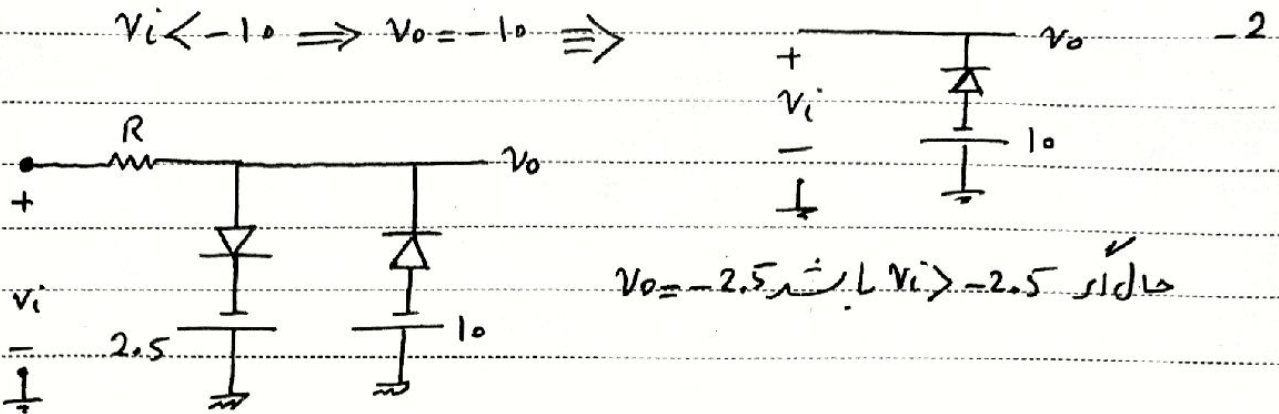 vi < -10 ⇒ v0 = -10 ≡> v0 -2
+
vi
-
10
R
v0
+
vi
-
2.5
10
حال اگر vi > -2.5 باشد v0 = -2.5